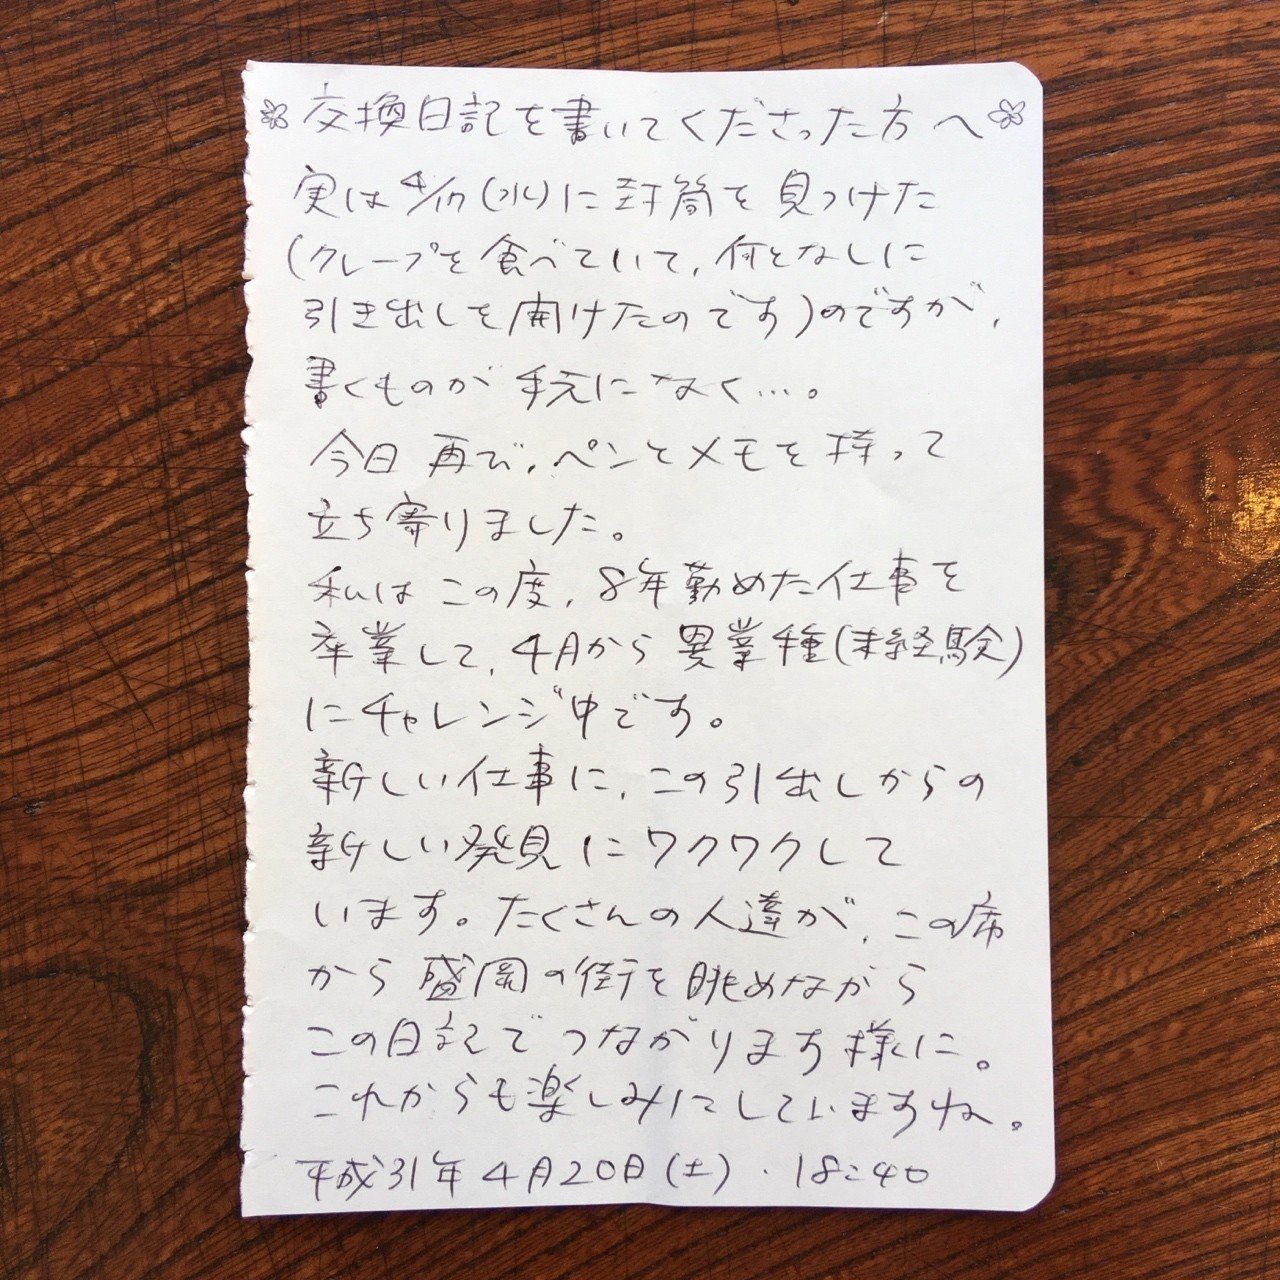 交換日記を書いてくださった方へ
実は4/17(水)に封筒を見つけた
(クレープを食べていて、何となしに
引き出しを開けたのです)のですが、
書くものが手元になく…。
今日再び、ペンとメモを持って
立ち寄りました。
私はこの度、8年勤めた仕事を
卒業して、4月から異業種(未経験)
にチャレンジ中です。
新しい仕事に、この引出しからの
新しい発見にワクワクして
います。たくさんの人達が、この席
から盛岡の街を眺めながら
この日記でつながります様に。
これからも楽しみにしていますね。
平成31年4月20日(土)・18:40